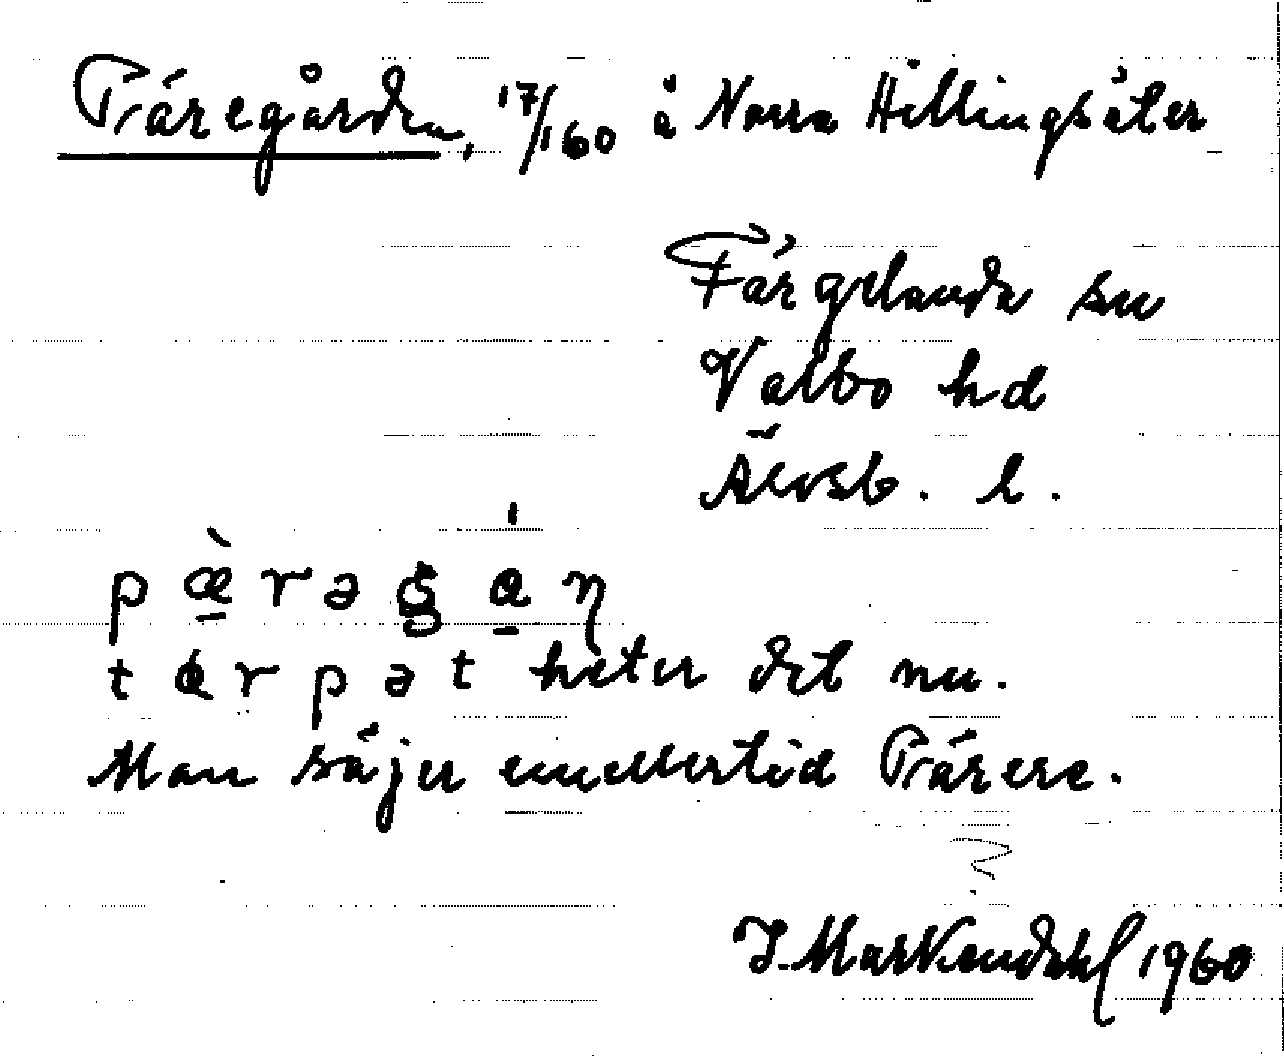 Päregården, 17/160 å Norra Hillingsäter
Färgelanda sn
Valbo hd
Älvsb. l.
pæ̀rəgan
tɵrpət heter det nu.
Man säjer emellertid Pärere.
J. Markendahl 1960